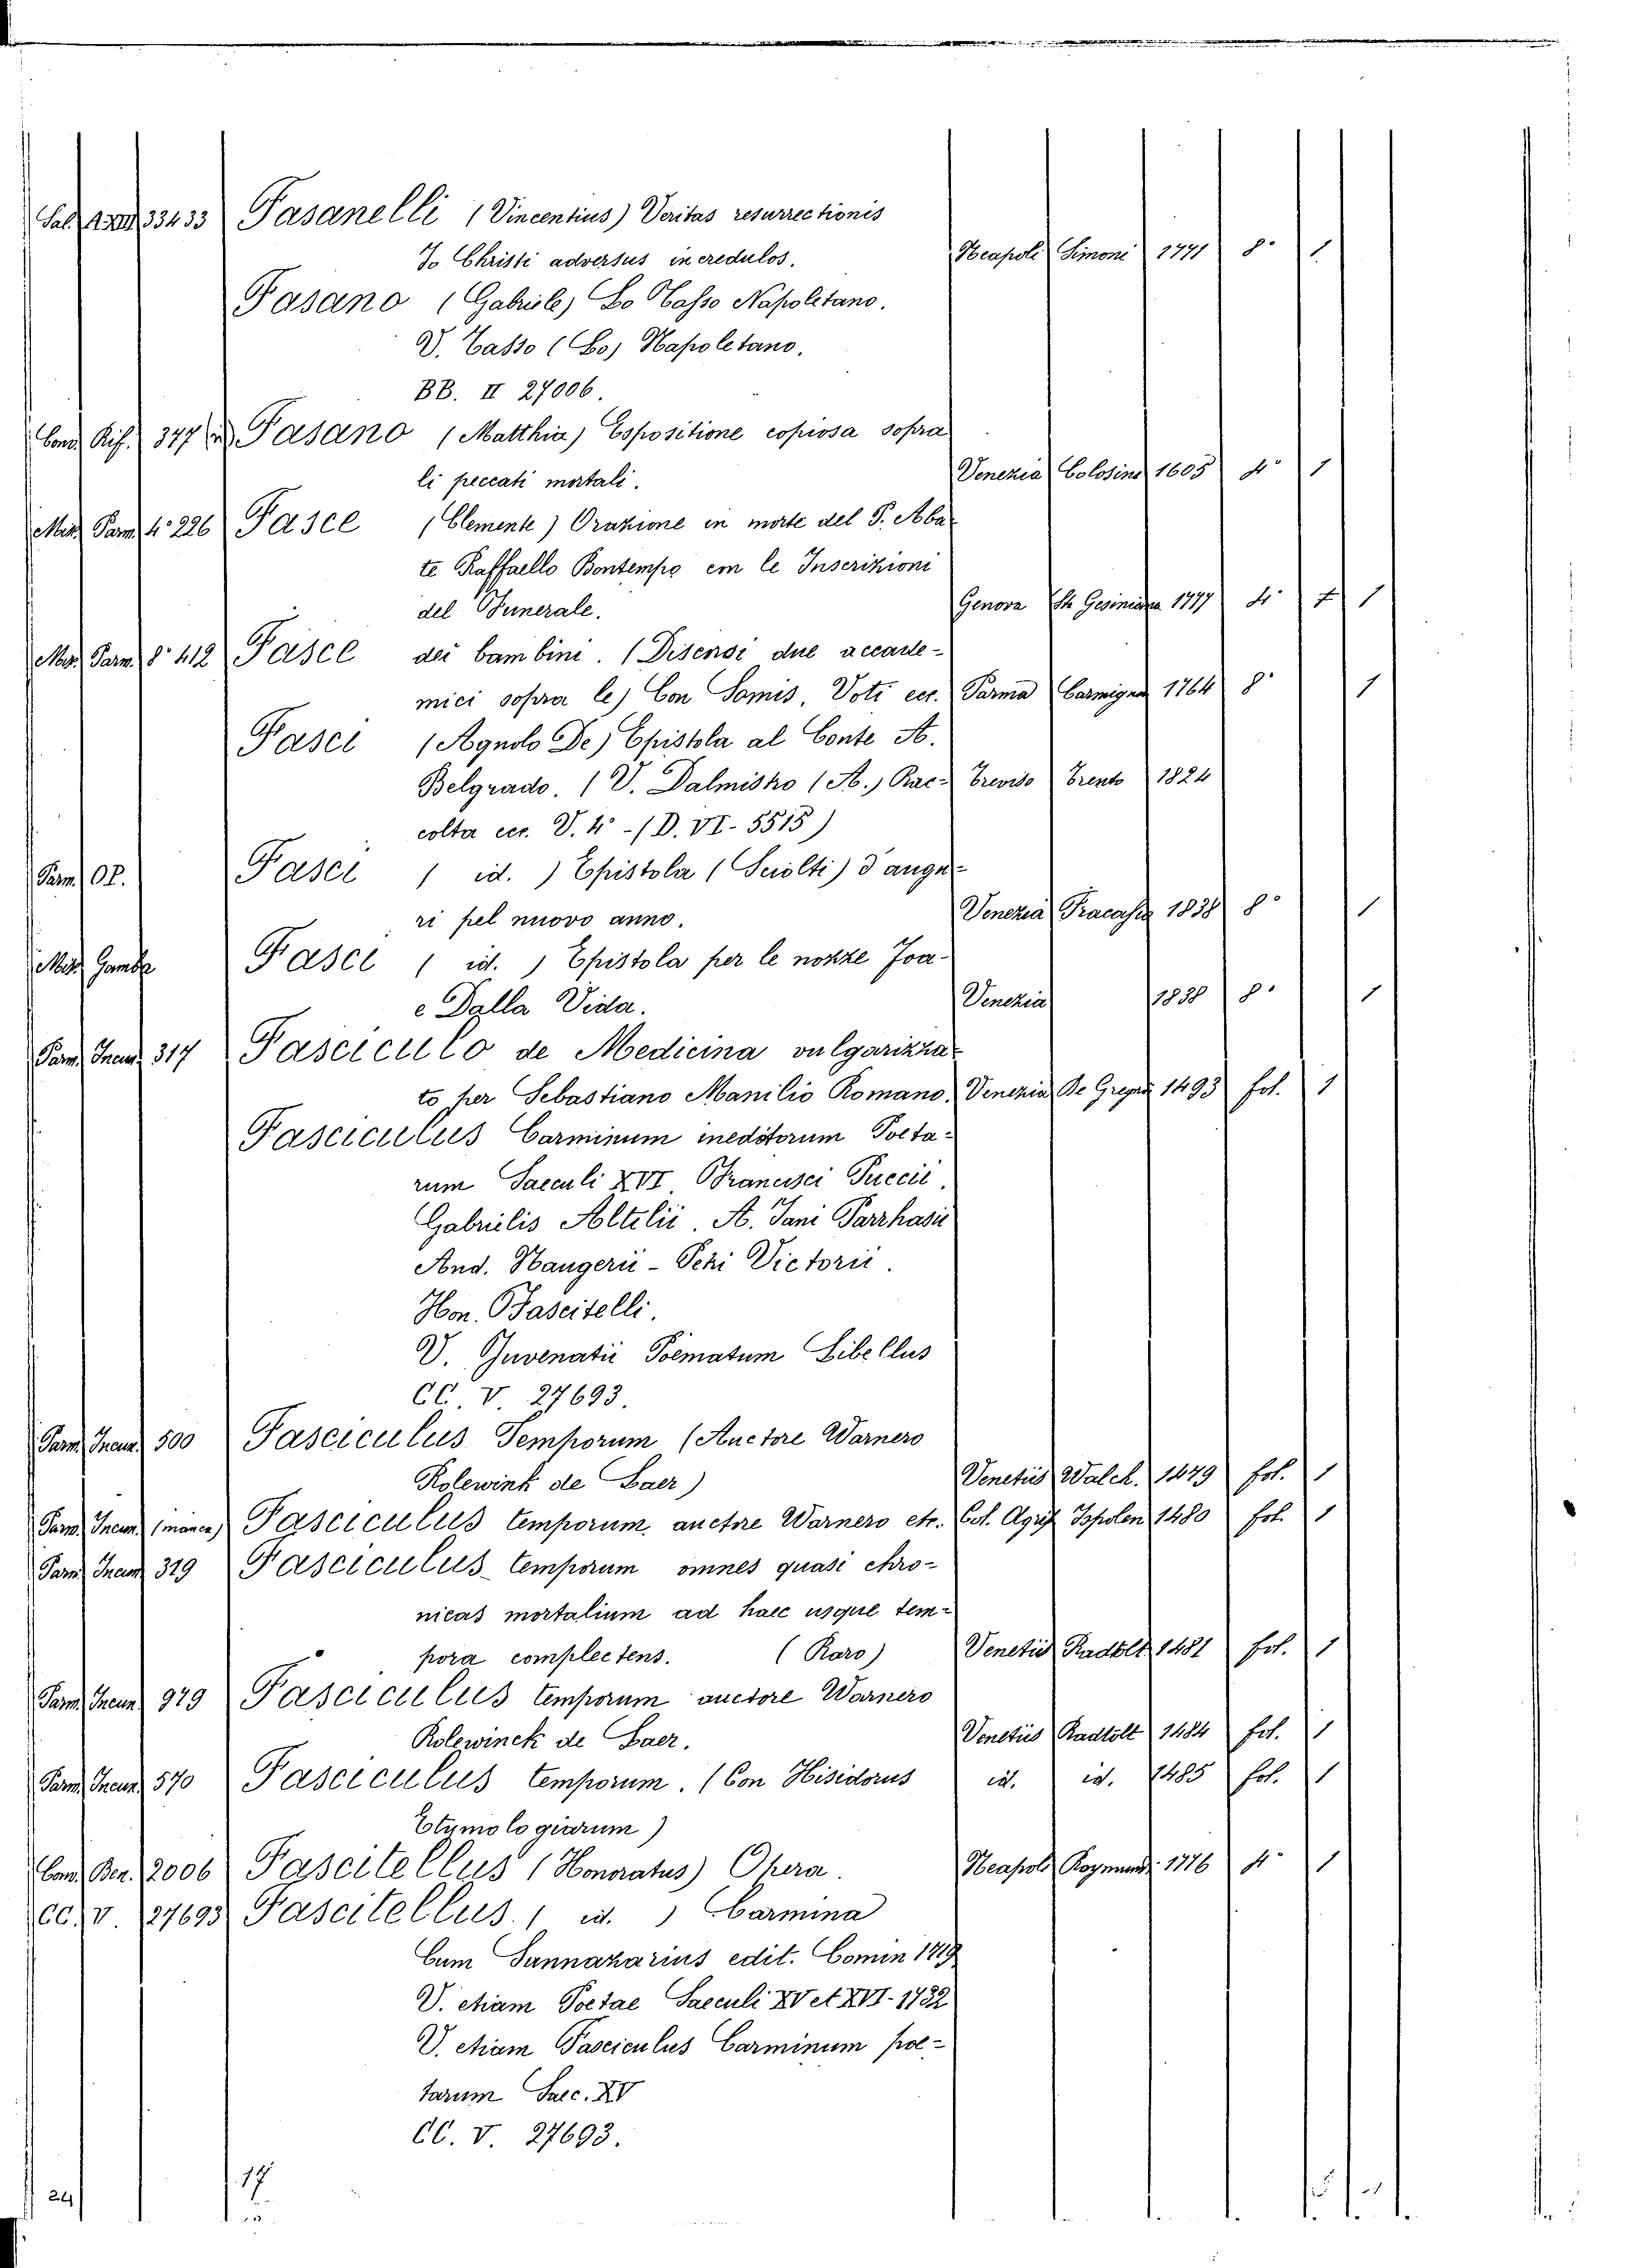 33433 Fasanelli (Vincentius) Veritas resurrectionis
Jo Christi adversus incredulos. Neapoli Simoni 1771 8° 1
Fasano (Gabriele) Lo Tasso Napolitano.
V. Tasso (Lo) Napoletano.
BB. II 27006.
Cond. Rif. 377 Fasano (Matthia) Espositione copiosa sopra
li peccati mortali. Venezia Colosino 1605 4° 1
Misc. Parm. 4° 226 Fasce (Clemente) Orazione in morte del P. Aba-
te Raffaello Bontempo con le Inscrizioni
del Funerale. Genova 1777 4° 1
Misc. Parm. 8° 412 Fasce dei bambini. (Disensi due accade-
mici sopra le) Con Samis, Voti ecc. Parma Carmignani 1764 8° 1
Fasci (Agnolo De) Epistola al Conte A.
Belgrado. (V. Dalmistro (A.) Rac- Treviso Trento 1824
colta ecc. V. 4° - (D. VI- 5515)
Parm. OP. Fasci ( id. ) Epistola (Sciolti) d'augu-
ri pel nuovo anno. Venezia Fracasso 1838 8° 1
Misc. Gamba Fasci ( id. ) Epistola per le nozze Joa-
e Dalla Vida. Venezia 1838 8° 1
Parm. Incun. 317 Fasciculo de Medicina vulgarizza-
to per Sebastiano Manilio Romano. Venezia De Gregori 1493 fol. 1
Fasciculus Carminum ineditorum Poeta-
rum Saeculi XVI, Francisci Puccii,
Gabrielis Altilii, A. Jani Parrhasii
And. Naugerii - Petri Victorii.
Hon. Fascitelli.
V. Juvenatii Poematum Libellus
CC. V. 27693.
Parm. Incun. 500 Fasciculus Temporum (Auctore Warnero
Rolewink de Laer) Venetiis Walch. 1479 fol. 1
Parm. Incun. (manca) Fasciculus temporum auctore Warnero etc. Col. Agrip. 1480 fol. 1
Parm. Incun. 319 Fasciculus temporum omnes quasi chro-
nicas mortalium ad haec usque tem-
pora complectens. (Raro) Venetiis Radtolt 1481 fol. 1
Parm. Incun. 979 Fasciculus temporum auctore Warnero
Rolewinck de Laer. Venetiis Radtolt 1484 fol. 1
Parm. Incun. 570 Fasciculus temporum. (Con Hisidorus id. id. 1485 fol. 1
Etymologiarum)
Cond. Ben. 2006 Fascitellus (Honoratus) Opera. Neapoli Raymundi 1776 4° 1
CC. V. 27693 Fascitellus ( id. ) Carmina
Cum Sannazarius edit. Comin 1719
V. etiam Poetae Saeculi XV et XVI- 1732
V. etiam Fasciculus Carminum poe-
tarum Saec. XV
CC. V. 27693.
17
24